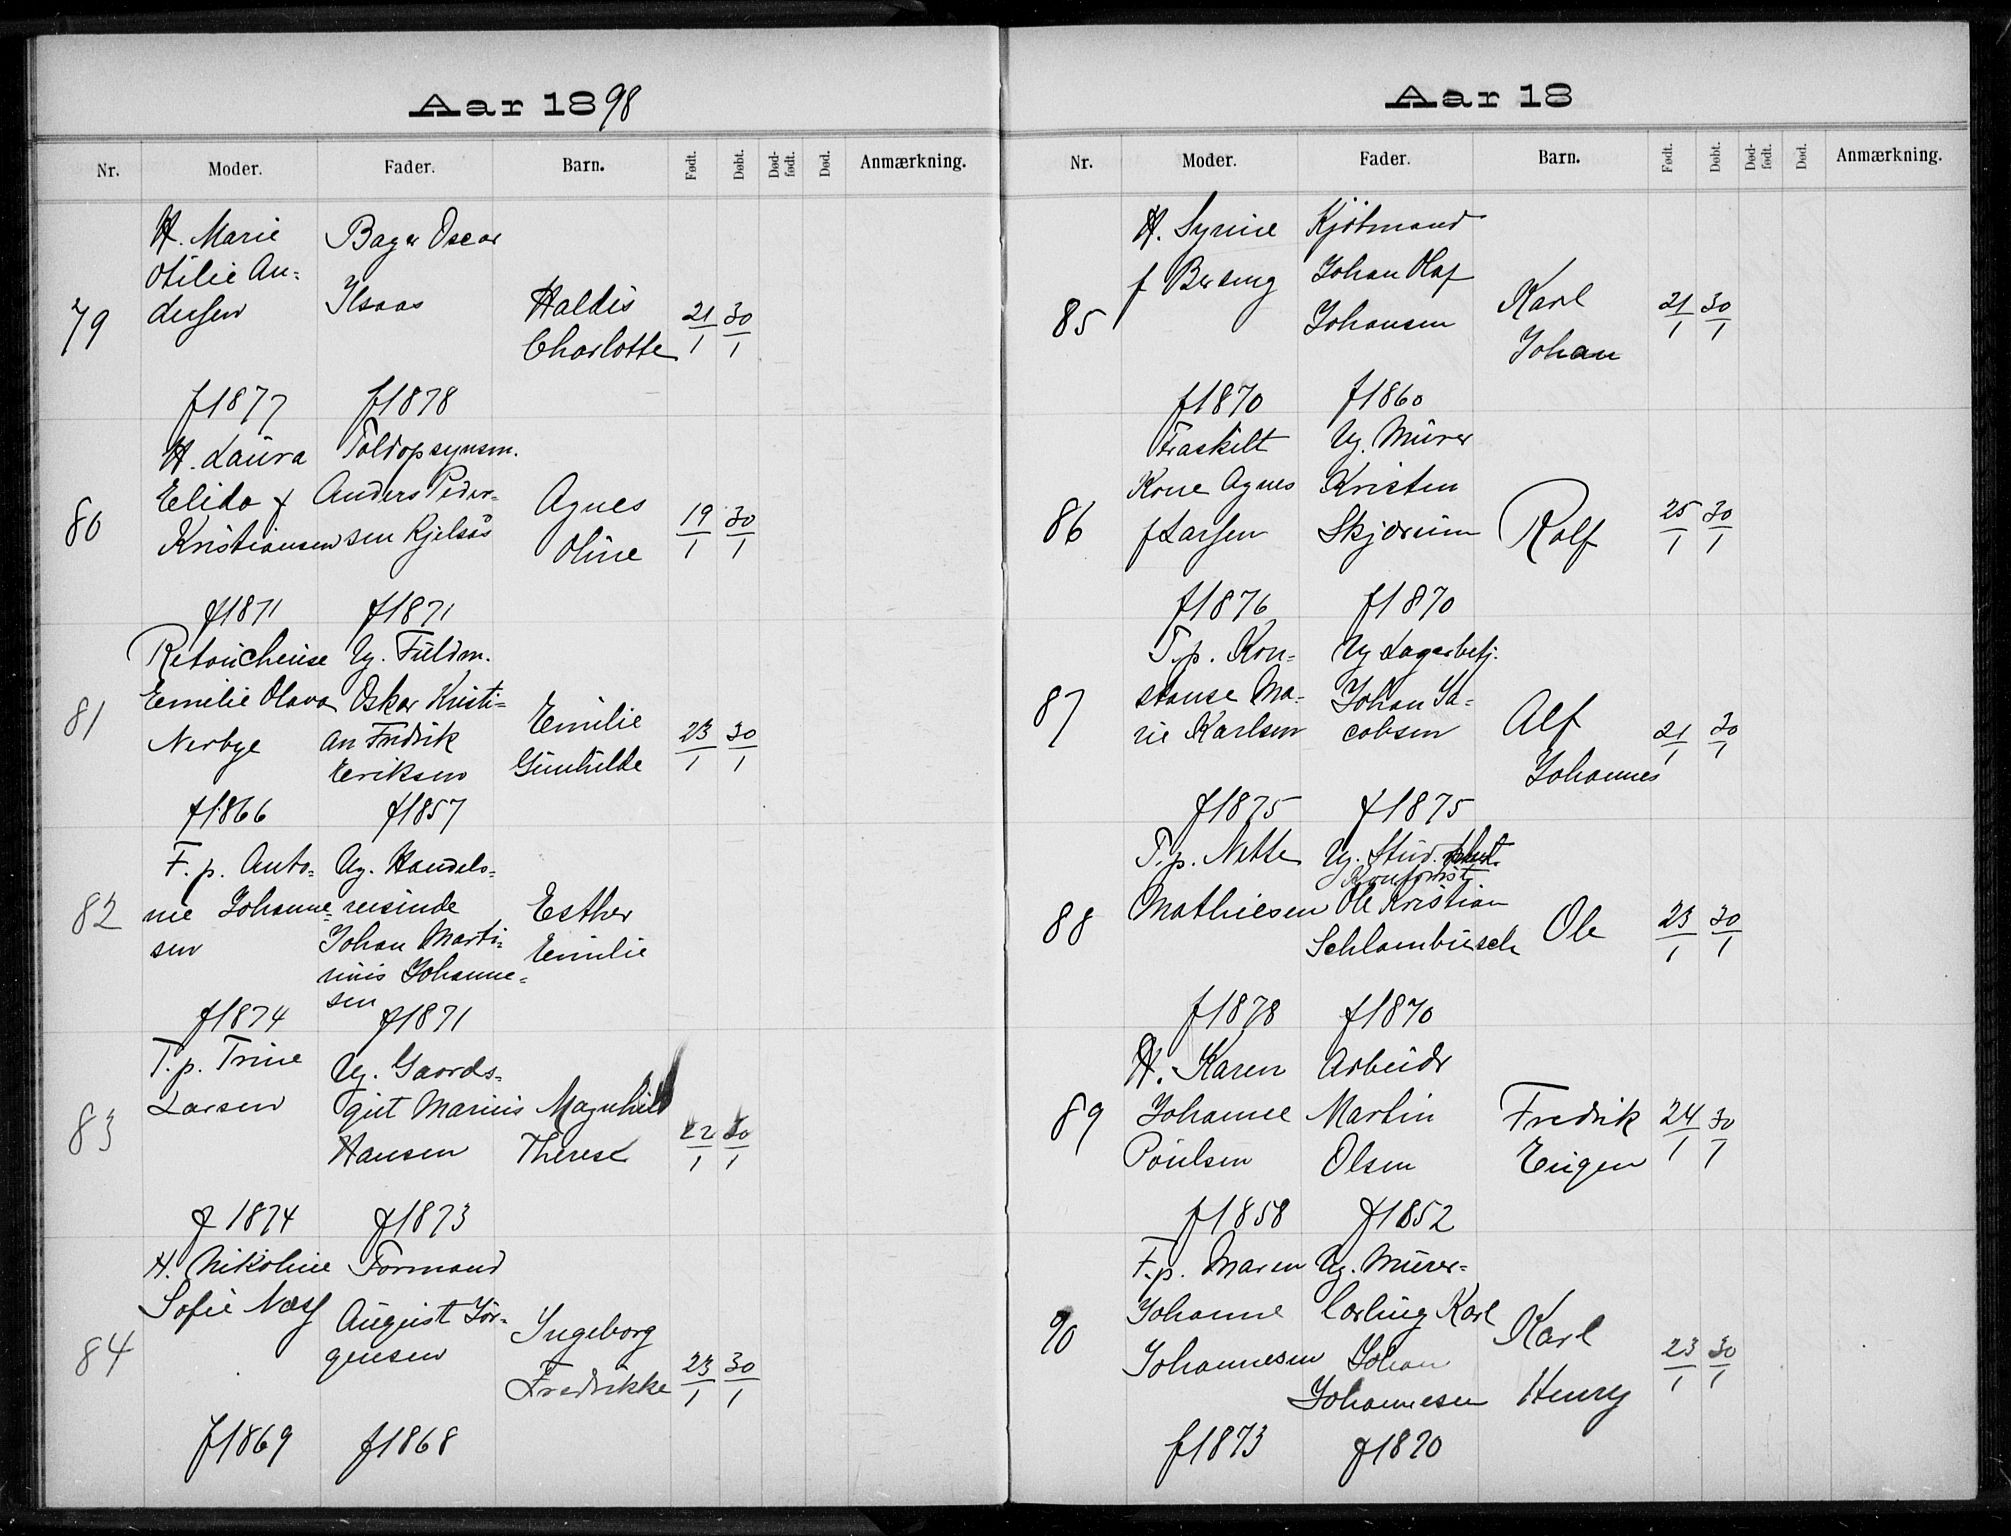 Aar 1898
Nr. Moder. Fader. Barn. Født. Døbt. Død-født. Død. Anmærkning.
79
H. Marie
Otilie An-
dersen
f 1877
Bager Oscar
Ilsaas
f 1878
Haldis
Charlotte
21/1 30/1
80
H. Laura
Elida f
Kristiansen
f 1871
Toldopsynsm.
Anders Peder-
sen Kjelsås
f 1871
Agnes
Oline
19/1 30/1
81
Retoucheuse
Emilie Olava
Nerbye
f 1866
Ug. Fuldm.
Oskar Kristi-
an Fredrik
Eriksen
f 1857
Emilie
Gunhilde
23/1 30/1
82
F. p. Anto-
nie Johanne-
sen
f 1874
Ug. Handels-
reisende
Johan Marti-
nius Johanne-
sen
f 1871
Esther
Emilie
83
T. p. Trine
Larsen
f 1874
Ug. Gaards-
gut Marius
Hansen
f 1873
Magnhild
Therese
22/1 30/1
84
H. Nikoline
Sofie Næss
f 1869
Formand
August Jør-
gensen
f 1868
Ingeborg
Fredrikke
23/1 30/1
Aar 18
Nr. Moder. Fader. Barn. Født. Døbt. Død-født. Død. Anmærkning.
85
H. Syrine
f
f 1870
Kjøbmand
Johan Olaf
Johansen
f 1860
Karl
Johan
21/1 30/1
86
Fraskilt
Kone Agnes
f Larsen
f 1876
Ug. Murer
Kristen
Skjørum
f 1870
Rolf
25/1 30/1
87
T. p. Kon-
stanse Ma-
rie Karlsen
f 1875
Ug Lagerbetj.
Johan Ja-
cobsen
f 1875
Alf
Johannes
21/1 30/1
88
T. p. Nette
Mathiesen
f 1878
Ug. Stud.
Ole Kristian
Schlambusch
f 1870
Ole
23/1 30/1
89
H. Karen
Johanne
Poulsen
f 1858
Arbeider
Martin
Olsen
f 1852
Fredrik
Eugen
24/1 30/1
90
F. p. Maren
Johanne
Johannesen
f 1873
Ug. Murer-
lærling Karl
Johan
Johannesen
f 1870
Karl
Henry
23/1 30/1